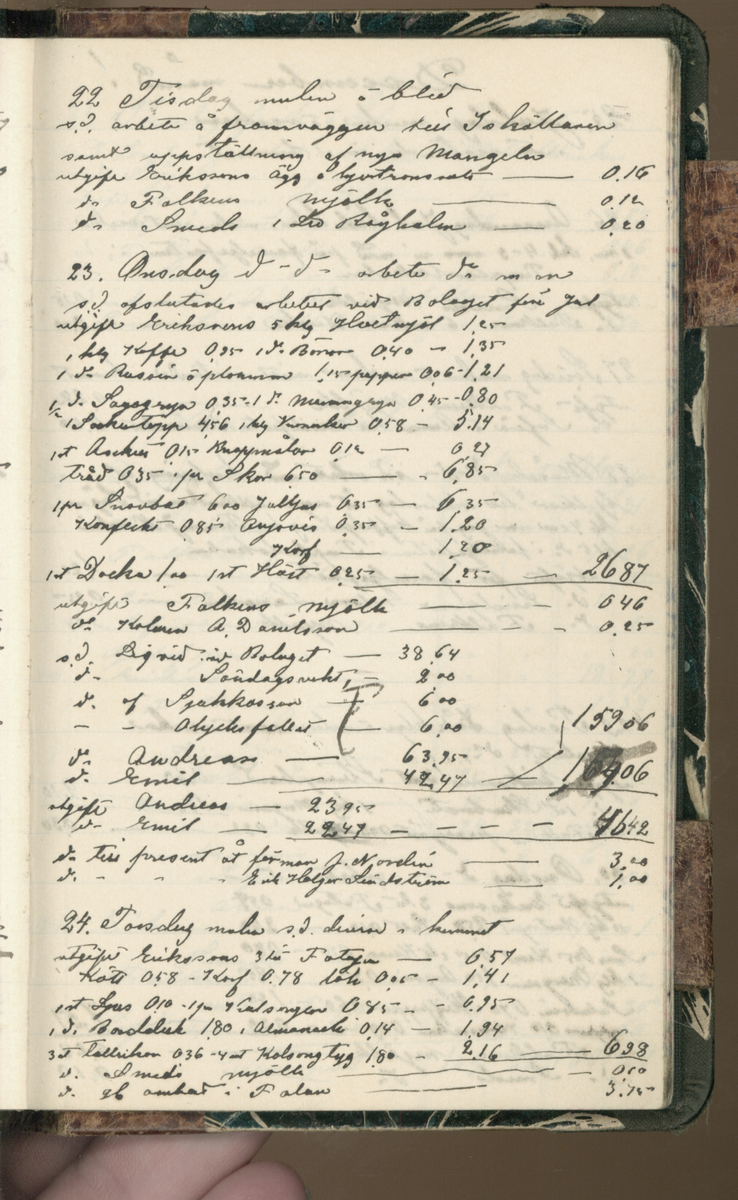 22 Tisdag mulen o blid
s.d. arbete å framväggen till Iskällaren
samt uppställning af nya Mangeln
utgift Erikssons Ägg o — 0.16
do Falkens mjölk — 0.12
do Smeds 1 Lod — 0.20
23. Onsdag d - d - arbete do m m
s.d. afslutades arbetet vid Bolaget före Jul
utgift Erikssons 5 kg Hvetmjöl 1,25
1 kg Kaffe 0.95 1 do Bönor 0.40 - 1,35
1 do Russin o plommon 1,15 peppar 0.06 - 1,21
1/2 do Sagogryn 0.35 - 1 do Mannagryn 0.45 - 0.80
1 Sockertopp 4.56 1 kg 0.58 - 5.14
1 st 0.15 Knappnålar 0.12 — 0,27
tråd 0.35 1 pr Skor 6.50 — 6,85
1 pr 6.00 Julljus 0.35 — 6.35
Konfeckt 0.85 Anjovis 0.35 — 1,20
Korf — 1,20
1 st Docka 1,00 1 st Häst 0.25 — 1,25 — 26 87
utgift Falkens mjölk — 0 46
do Kolaren A. Danielsson — 0.25
s.d. Liqvid vid Bolaget — 38,64
d - Söndagsvakt, — 2,00
do af Sjukkassan — 6,00
- - Olycksfallet — 6,00 159 06
do Andreas — 63,95
do Emil — 42,47 — 06
utgift Andreas — 23,95
do Emil — 22,47 — — — 46 42
do till present åt förman J. Nordin — 3,00
do - - Erik Holger Lindström — 1,00
24. Torsdag mulen s.d. diverse i hemmet
utgift Erikssons 3 Fotogen — 0,57
Kött 0.58 - Korf 0.78 lök 0.05 - 1,41
1 st Ljus 0.10 - 1 pr Kalsonger 0.85 — 0.95
1 do Bordduk 1.80 1 Almanacka 0.14 — 1,94
3 st tallrikar 0.36 - 4 mt Kalsongtyg 1.80 - 2,16 — 6 98
do Smeds mjölk —
do i Falun — 3.75